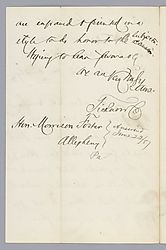 are engraved & printed in a
style to do honor to the subject
Hoping to hear from you
We are Very Truly
Yours
Ticknor & Co
Hon. Morrison Foster
Allegheny
Pa
Answered